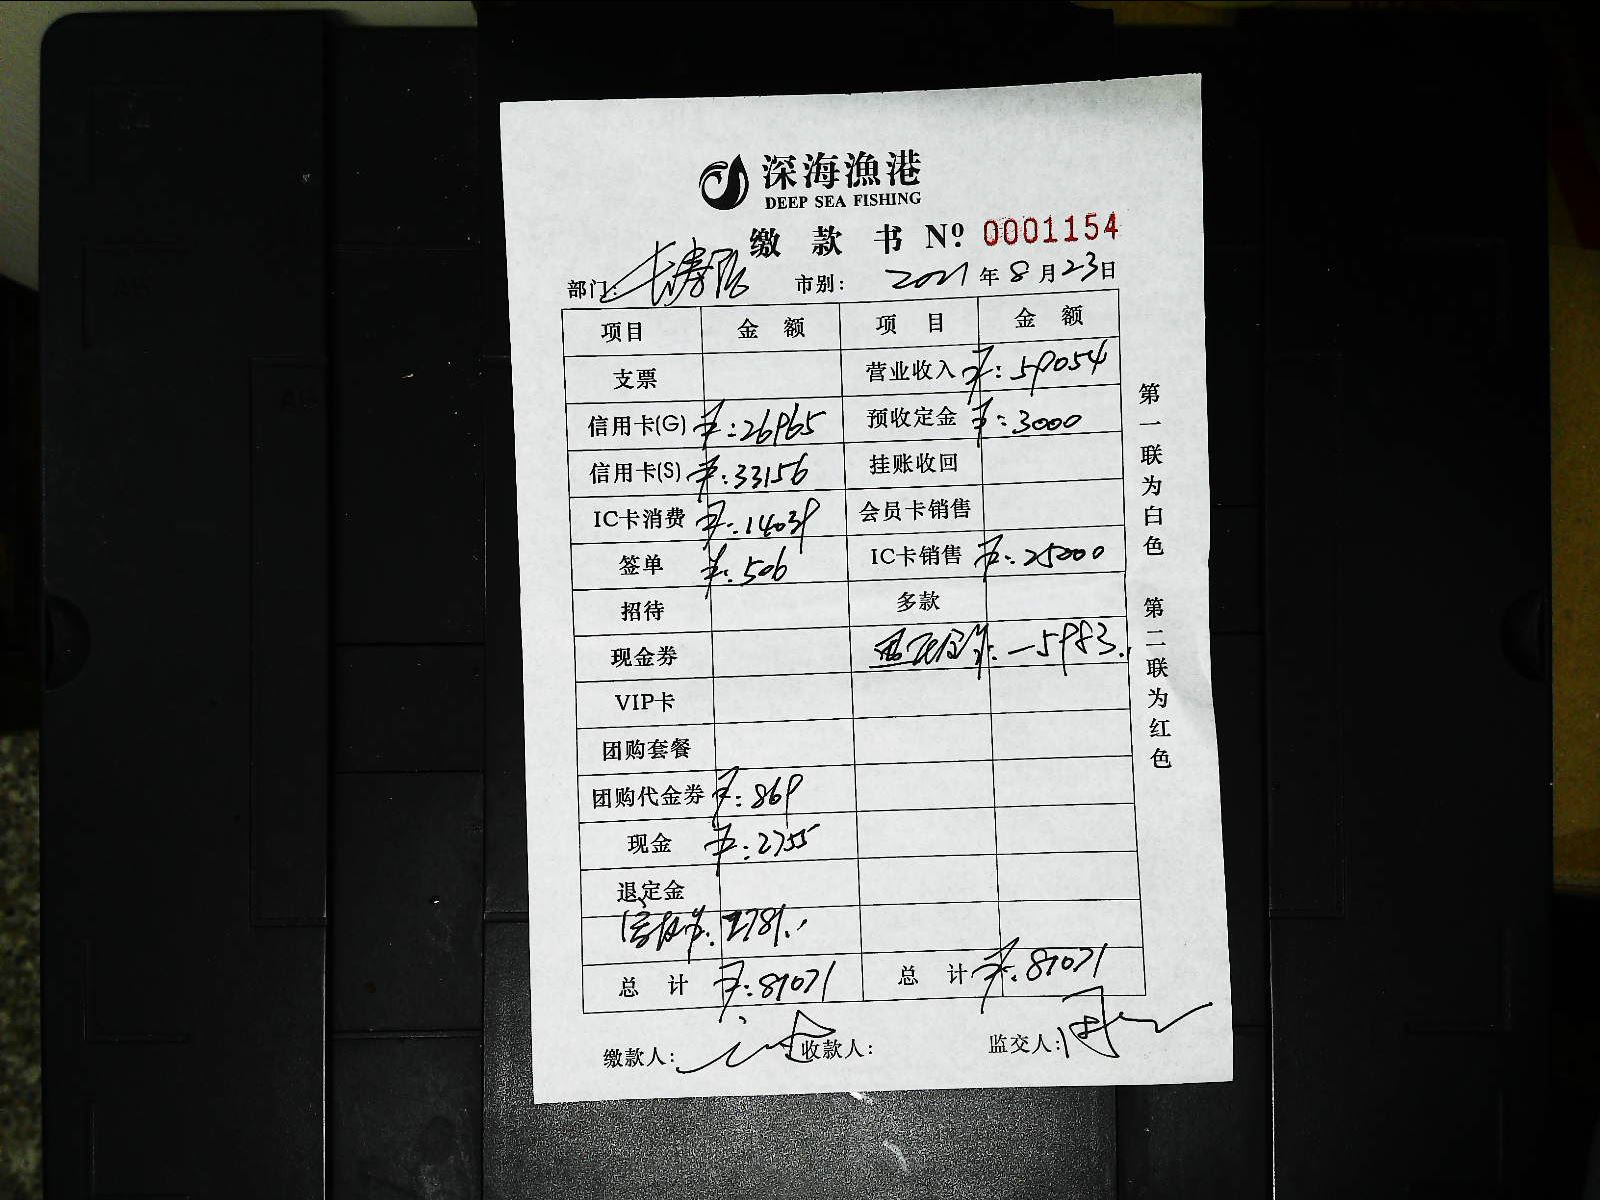 深海漁港
DEEP SEA FISHING
缴 款 书 Nº 0001154
部门: 长寿 市别: 2021 年 8 月 23 日
项目 金 额 项 目 金 额
支票 营业收入 ¥: 59054
信用卡(G) ¥: 26965 预收定金 ¥: 3000
信用卡(S) ¥: 33156 挂账收回
IC卡消费 ¥: 14039 会员卡销售
签单 ¥: 506 IC卡销售 ¥: 25000
招待 多款
现金券 —5983.
VIP卡
团购套餐
团购代金券 ¥: 869
现金 ¥: 2755
退定金
2781.
总 计 ¥: 81071 总 计 ¥: 81071
缴款人: 收款人: 监交人:
第一联为白色 第二联为红色